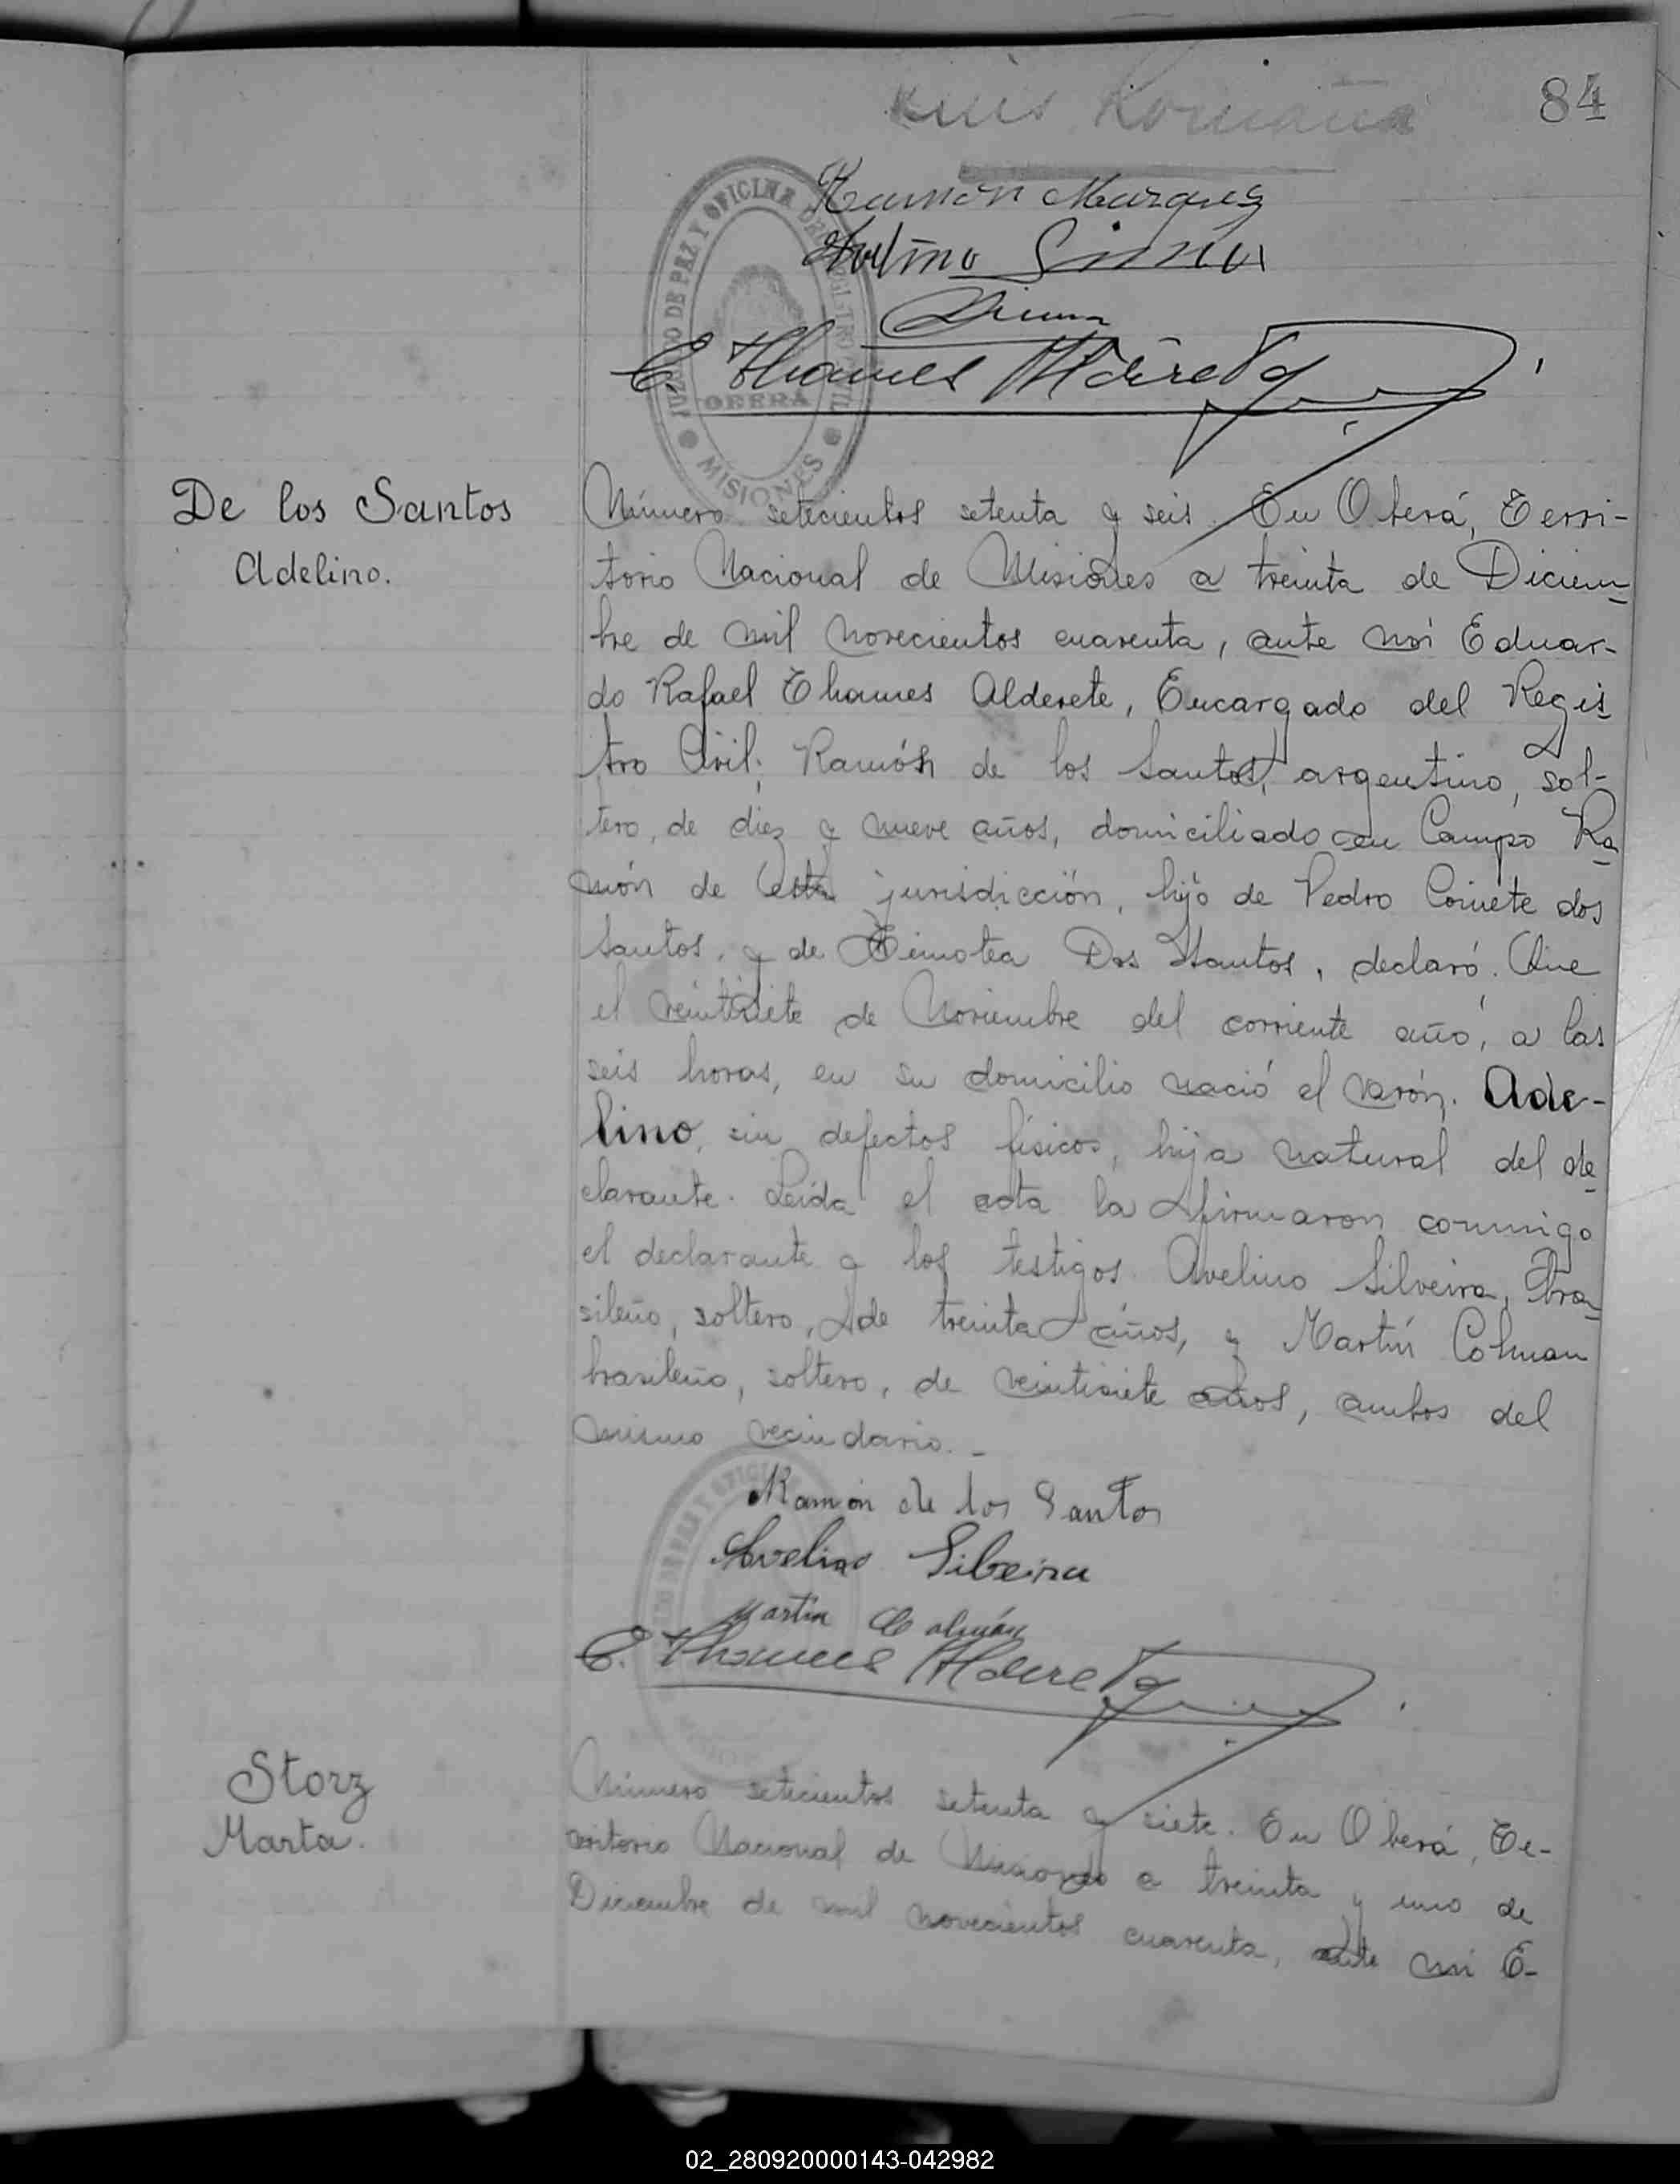 84
Luis Romaña
Ramón Marquez
JUZGADO DE PAZ Y OFICINA DEL REGISTRO CIVIL
OBERÁ
MISIONES
E. Thames Alderete
De los Santos
Adelino.
Número setecientos setenta y seis. En Oberá, Terri-
torio Nacional de Misiones a treinta de Diciem-
bre de mil novecientos cuarenta, ante mí Eduar-
do Rafael Thames Alderete, Encargado del Regis
tro Civil: Ramón de los Santos, argentino, sol-
tero, de diez y nueve años, domiciliado en Campo Ra
món de esta jurisdicción, hijo de Pedro dos
Santos, y de Timotea Dos Santos, declaró: Que
el veintisiete de Noviembre del corriente año, a las
seis horas, en su domicilio nació el varón. Ade-
lino, sin defectos físicos, hija natural del de
clarante. Leída el acta la firmaron conmigo
el declarante y los testigos Avelino Silveira, bra-
sileño, soltero, de treinta años, y Martín Colman
brasileño, soltero, de veintisiete años, ambos del
mismo vecindario.-
Ramón de los Santos
Avelino Silbeira
Martin Colmán
E. Thames Alderete
Storz
Marta.
Número setecientos setenta y siete. En Oberá, Te-
rritorio Nacional de Misiones a treinta y uno de
Diciembre de mil novecientos cuarenta, ante mí E-
02_280920000143-042982